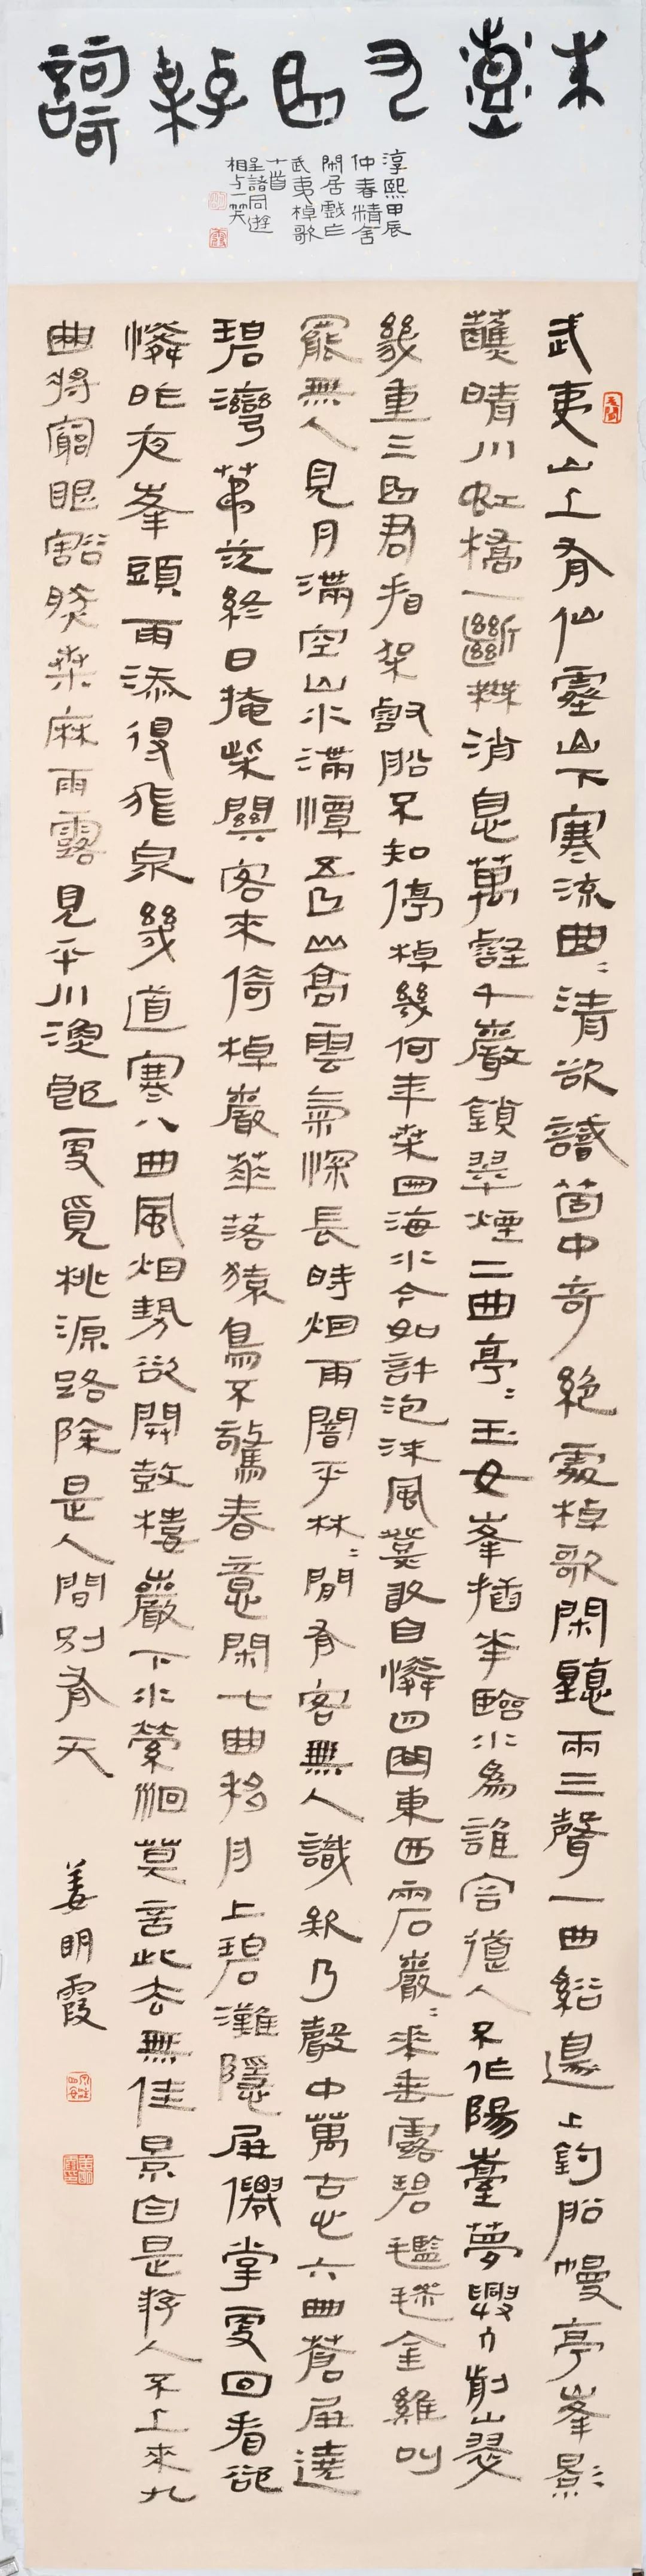 朱熹九曲棹謌
淳熙甲辰
仲春精舍
閒居戲作
武夷棹歌
十首
呈諸同遊
相与一笑
武夷山上有仙靈山下寒流曲〻清欲識箇中奇絶處棹歌閑聽兩三聲一曲谿邊上釣船幔亭峯影
蘸晴川虹橋一斷無消息萬壑千巖鎖翠煙二曲亭〻玉女峯插花臨水為誰容道人不作陽臺夢興入前山翠
幾重三曲君看架壑船不知停棹幾何年桑田海水今如許泡沫風燈敢自憐四曲東西兩石巖〻花垂露碧㲯毿金雞叫
罷無人見月滿空山水滿潭五曲山高雲氣深長時烟雨闇平林〻間有客無人識欸乃聲中萬古心六曲蒼屏遶
碧灣茅茨終日掩柴關客來倚棹巖華落猿鳥不驚春意閑七曲移舟上碧灘隱屏僊掌更回看卻
憐昨夜峯頭雨添得飛泉幾道寒八曲風烟勢欲開鼓樓巖下水縈洄莫言此去無佳景自是遊人不上來九
曲將窮眼豁然桑麻雨露見平川漁郎更覓桃源路除是人間別有天
姜明霞